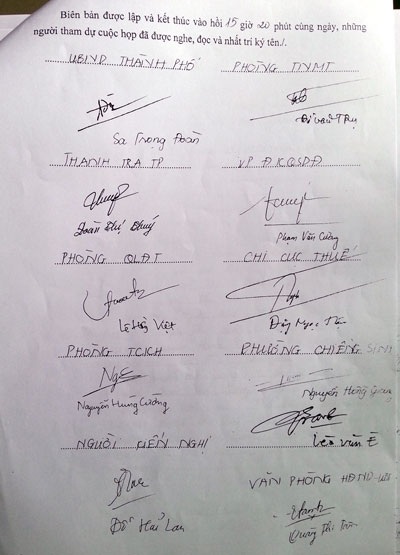 Biên bản được lập và kết thúc vào hồi 15 giờ 20 phút cùng ngày, những
người tham dự cuộc họp đã được nghe, đọc và nhất trí ký tên./.
UBND THÀNH PHỐ PHÒNG TNMT
Sa Trọng Đoàn
THANH TRA TP VP ĐKQSDĐ
Đoàn Thị Thuý Phạm Văn Cường
PHÒNG QLĐT CHI CỤC THUẾ
Lê Hồng Việt Đặng Ngọc
PHÒNG TCKH PHƯỜNG CHIỀNG SINH
Nguyễn Hùng Cường Nguyễn Hồng
Văn
NGƯỜI KIẾN NGHỊ
VĂN PHÒNG HĐND-
Đỗ Hải Lan Thị